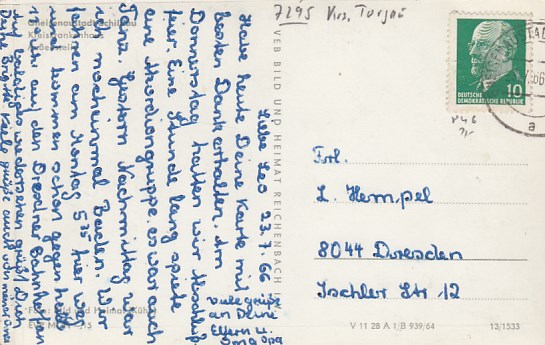 7295 Krs. Torgau
Gneisenaustadt Schildau
Kreiskrankenhaus
Außenstelle
Liebe Leo 23.7.66
Habe heute Deine Karte mit
besten Dank erhalten. Am
Donnerstag hatten wir Abschluß-
feier. Eine Stunde lang spielte
eine Akordiongruppe. es war auch
Tanz. Gestern Nachmittag war
ich nocheinmal Baden. Wir
fahren am Montag 5 35 hier weg
kommen schon gegen
auf den Dresdner Bahnhof an
baldiges wiedersehen grüßt Dich
Deine Brigitte Viele grüße auch von
Viele grüße
an Deine
Eltern u.
Oma
Opa
VEB BILD UND HEIMAT REICHENBACH
Foto: Bild und Heimat
DEUTSCHE
DEMOKRATISCHE REPUBLIK
10
Frl.
L. Hempel
8044 Dresden
Ischler Str 12
V 11 28 A 1/B 939/64
13/1533